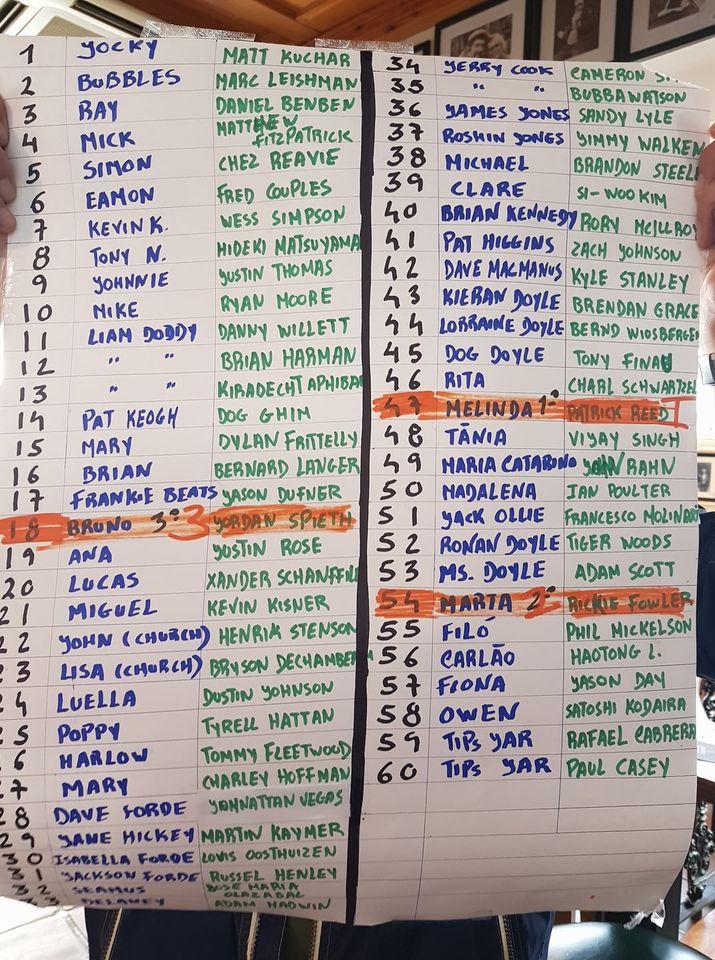 1 YOCKY MATT KUCHAR
2 BUBBLES MARC LEISHMAN
3 RAY DANIEL BENBEN
4 MICK MATTHEW FITZPATRICK
5 SIMON CHEZ REAVIE
6 EAMON FRED COUPLES
7 KEVIN K. WESS SIMPSON
8 TONY N. HIDEKI MATSUYAMA
9 YOHNNIE YUSTIN THOMAS
10 MIKE RYAN MOORE
11 LIAM DODDY DANNY WILLETT
12 " " BRIAN HARMAN
13 " " KIRADECHT APHIBA
14 PAT KEOGH DOG GHIM
15 MARY DYLAN FRITTELLY
16 BRIAN BERNARD LANGER
17 FRANKIE BEATS YASON DUFNER
18 BRUNO 3º 3 YORDAN SPIETH
19 ANA YUSTIN ROSE
20 LUCAS XANDER SCHANFFILL
21 MIGUEL KEVIN KISNER
22 YOHN (CHURCH) HENRIK STENSON
23 LISA (CHURCH) BRYSON DECHAMBE
24 LUELLA DUSTIN YOHNSON
25 POPPY TYRELL HATTAN
6 HARLOW TOMMY FLEETWOOD
27 MARY CHARLEY HOFFMAN
28 DAVE FORDE YOHNATTAN VEGAS
29 YANE HICKEY MARTIN KAYMER
30 ISABELLA FORDE LOUIS OOSTHUIZEN
31 YACKSON FORDE RUSSEL HENLEY
32 SEAMUS BOSE MARIA OLAZABAL
DELANEY ADAM HADWIN
34 YERRY COOK CAMERON
35 " " BUBBA WATSON
36 YAMES YONES SANDY LYLE
37 ROSHIN YONES YIMMY WALKEN
38 MICHAEL BRANDON STEEL
39 CLARE SI-WOO KIM
40 BRIAN KENNEDY RORY MCILLROY
41 PAT HIGGINS ZACH YOHNSON
42 DAVE MACMANUS KYLE STANLEY
43 KIERAN DOYLE BRENDAN GRACE
44 LORRAINE DOYLE BERND WIOSBERGE
45 DOG DOYLE TONY FINAU
46 RITA CHARL SCHWARTZEL
47 MELINDA 1º PATRICK REED I
48 TÂNIA VIYAY SINGH
49 MARIA CATARINO YONN RAHN
50 MADALENA IAN POULTER
51 YACK OLLIE FRANCESCO MOLINA
52 RONAN DOYLE TIGER WOODS
53 MS. DOYLE ADAM SCOTT
54 MARTA 2º RICKIE FOWLER
55 FILÓ PHIL MICKELSON
56 CARLÃO HAOTONG L.
57 FIONA YASON DAY
58 OWEN SATOSHI KODAIRA
59 TIPS YAR RAFAEL CABRERA
60 TIPS YAR PAUL CASEY